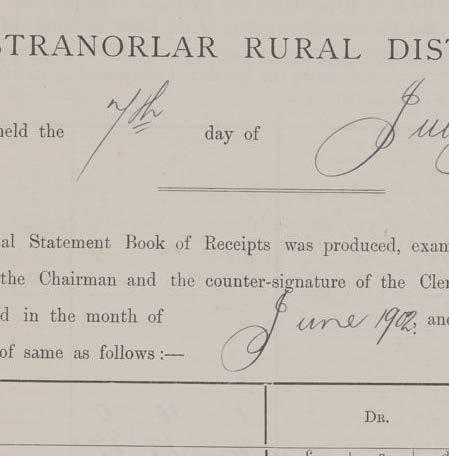 STRANORLAR RURAL DIST
held the 7th day of July
al Statement Book of Receipts was produced, exam
the Chairman and the counter-signature of the Cler
d in the month of June 1902, and
of same as follows :—
DR.